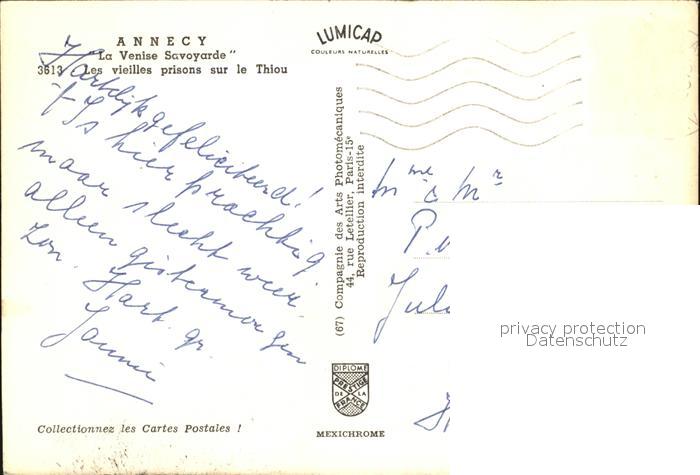 ANNECY
"La Venise Savoyarde"
3613 Les vieilles prisons sur le Thiou
LUMICAP
COULEURS NATURELLES
Hartelijk gefeliciteerd!
't Is hier prachtig
maar slecht weer.
alleen gistermorgen
zon.
Hart. gr.
(67) Compagnie des Arts Photomécaniques
44, rue Letellier, Paris-15e
Reproduction interdite
Mme & Mr
P.
privacy protection
Datenschutz
DIPLOME
PRESTIGE
DE LA
FRANCE
MEXICHROME
Collectionnez les Cartes Postales !